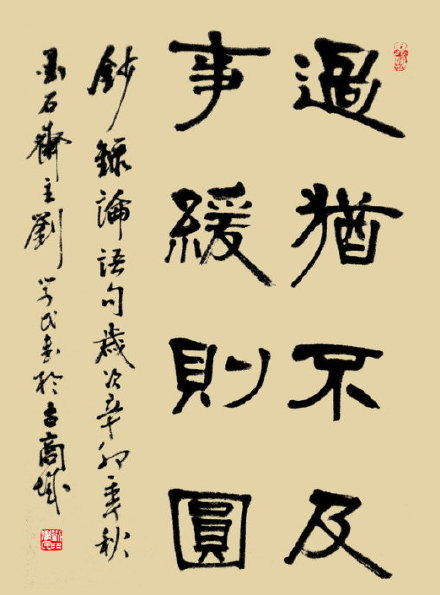 過猶不及
事緩則圓
鈔錄論語句歲次辛卯季秋
墨石齋主劉學民書於古商城